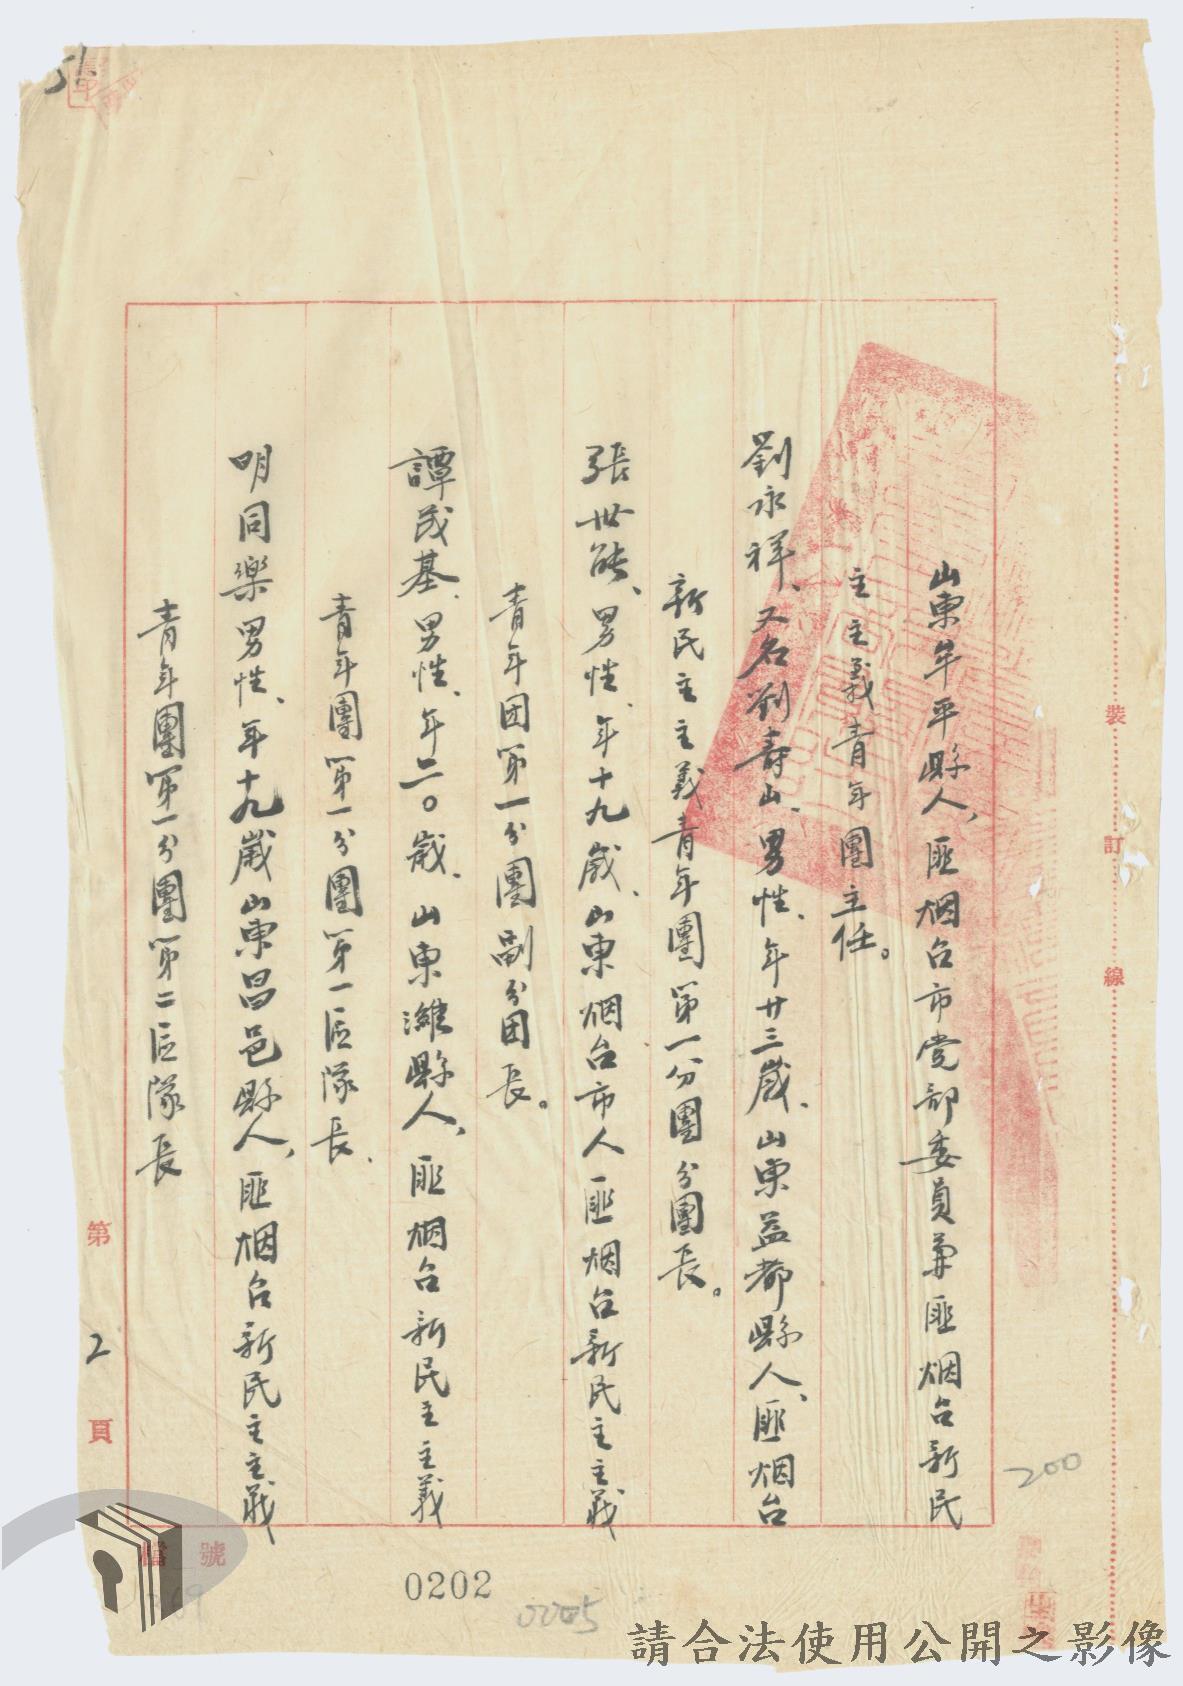 山東牟平縣人，匪烟台市党部委員兼匪烟台新民
主主義青年團主任。
劉永祥、又名劉壽山、男性、年廿三歲、山東益都縣人、匪烟台
新民主主義青年團第一分團分團長。
張世能、男性、年十九歲、山東烟台市人匪烟台新民主主義
青年团第一分團副分团長。
譚茂基、男性、年二〇歲、山東濰縣人，匪烟台新民主主義
青年團第一分團第一區隊長、
明同樂男性、年十九歲山東昌邑縣人，匪烟台新民主主義
青年團第一分團第二區隊長
裝
訂
線
第2頁
檔號
0202
0005
200
請合法使用公開之影像